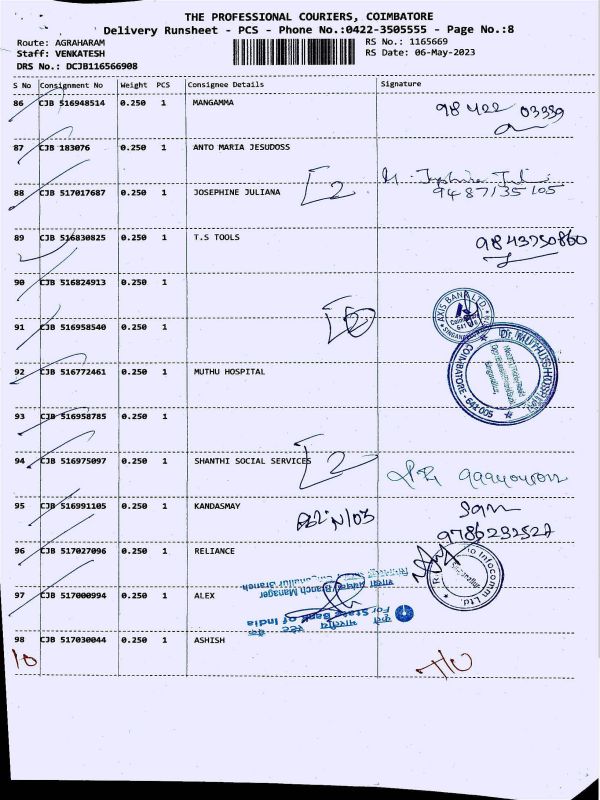 THE PROFESSIONAL COURIERS, COIMBATORE
Delivery Runsheet - PCS - Phone No.:0422-3505555 - Page No.:8
Route: AGRAHARAM RS No.: 1165669
Staff: VENKATESH RS Date: 06-May-2023
DRS No.: DCJB116566908
S No Consignment No Weight PCS Consignee Details Signature
86 CJB 516948514 0.250 1 MANGAMMA
98422 03359
87 CJB 183076 0.250 1 ANTO MARIA JESUDOSS
88 CJB 517017687 0.250 1 JOSEPHINE JULIANA [2
9487135105
89 CJB 516830825 0.250 1 T.S TOOLS 9843750860
90 CJB 516824913 0.250 1
AXIS BANK LTD.
91 CJB 516958540 0.250 1
Dr. MUTHUS HOSPITAL
COIMBATORE - 641 005
92 CJB 516772461 0.250 1 MUTHU HOSPITAL
93 CJB 516958785 0.250 1
94 CJB 516975097 0.250 1 SHANTHI SOCIAL SERVICES [2
95 CJB 516991105 0.250 1 KANDASMAY
9786232527
96 CJB 517027096 0.250 1 RELIANCE
Infocomm Ltd
97 CJB 517000994 0.250 1 ALEX
Branch Manager
For State Bank of India
98 CJB 517030044 0.250 1 ASHISH
10